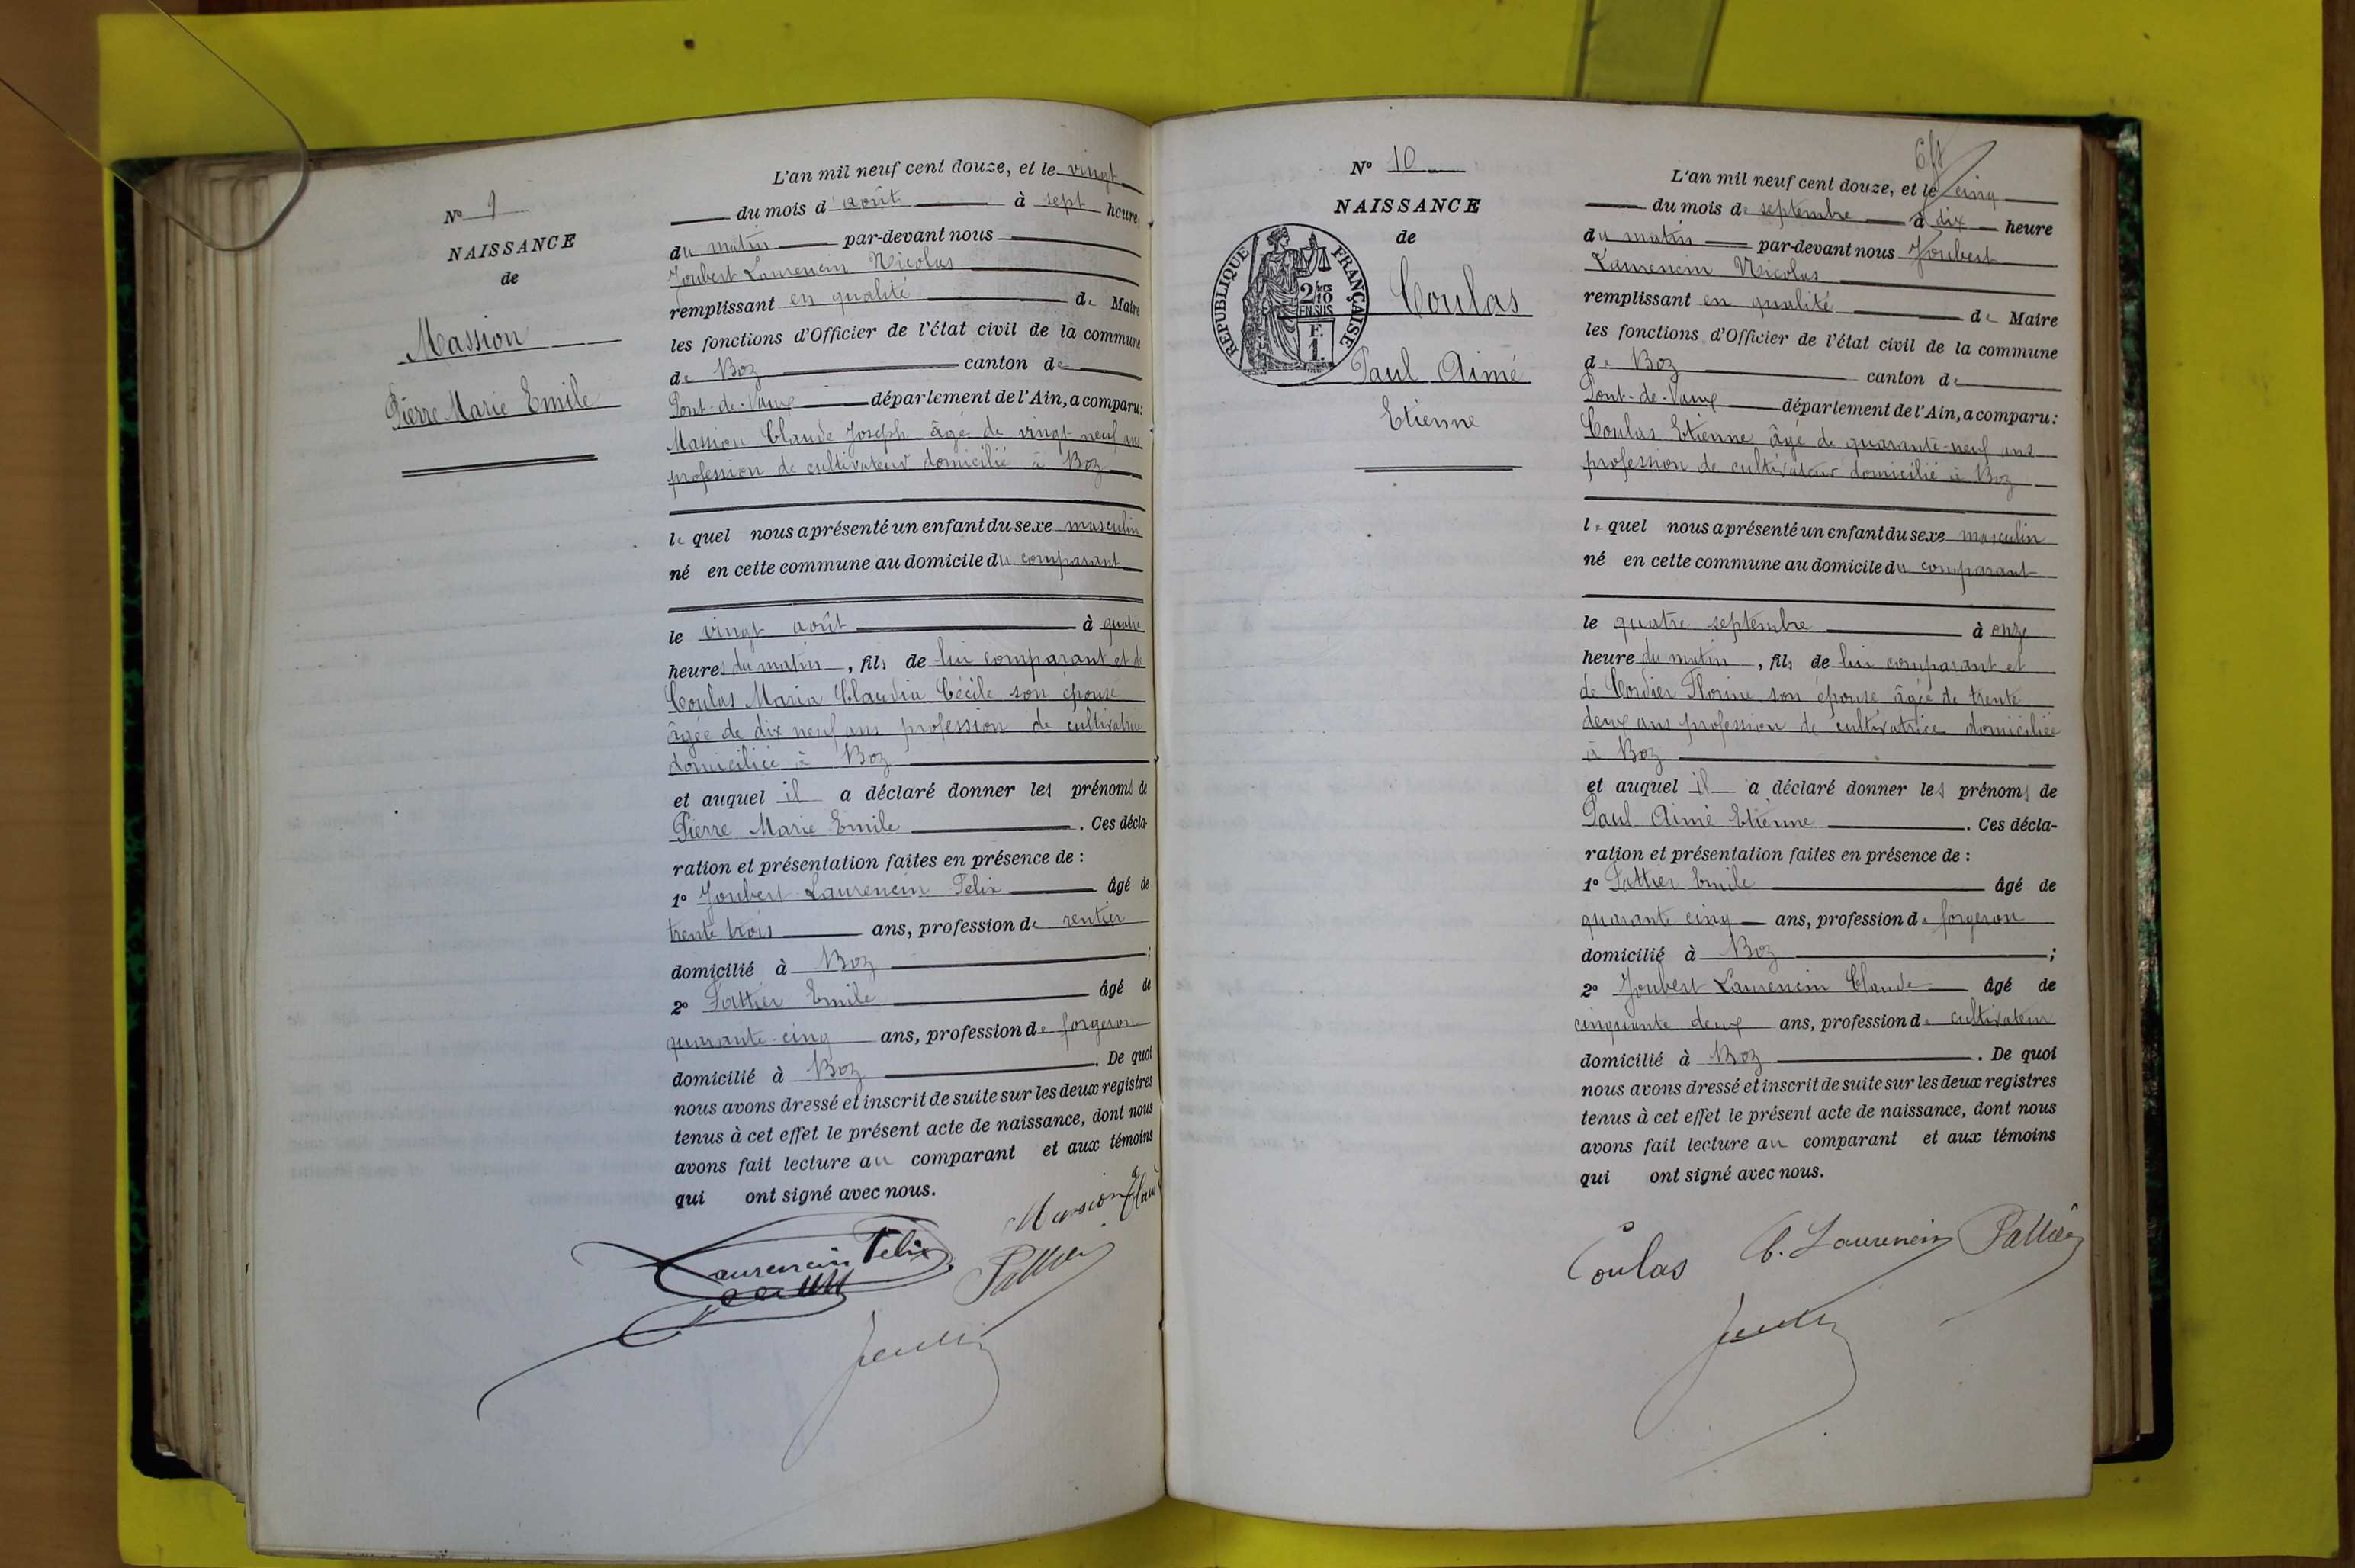 N° 9
NAISSANCE
de
Massion
Pierre Marie Emile
L'an mil neuf cent douze, et le vingt
du mois d'août à sept heures
du matin par-devant nous
Joubert Laurencin Nicolas
remplissant en qualité de Maire
les fonctions d'Officier de l'état civil de la commune
de Boz canton de
Pont-de-Vaux département de l'Ain, a comparu:
Massion Claude Joseph âgé de vingt-neuf ans
profession de cultivateur domicilié à Boz
le quel nous a présenté un enfant du sexe masculin
né en cette commune au domicile du comparant
le vingt août à quatre
heures du matin, fils de lui comparant et de
Coulas Maria Claudia Cécile son épouse
âgée de dix neuf ans profession de cultivatrice
domiciliée à Boz
et auquel il a déclaré donner les prénoms de
Pierre Marie Emile . Ces décla-
ration et présentation faites en présence de :
1° Joubert Laurencin Felix âgé de
trente trois ans, profession de rentier
domicilié à Boz ;
2° Pattier Emile âgé de
quarante-cinq ans, profession de forgeron
domicilié à Boz . De quoi
nous avons dressé et inscrit de suite sur les deux registres
tenus à cet effet le présent acte de naissance, dont nous
avons fait lecture au comparant et aux témoins
qui ont signé avec nous.
Massion
Laurencin Felix
Pattier
N° 10
NAISSANCE
de
RÉPUBLIQUE FRANÇAISE
2/10
EN SUS
F.
1.
Coulas
Paul Aimé
Etienne
L'an mil neuf cent douze, et le cinq
du mois de septembre à dix heure
du matin par-devant nous Joubert
Laurencin Nicolas
remplissant en qualité de Maire
les fonctions d'Officier de l'état civil de la commune
de Boz canton de
Pont-de-Vaux département de l'Ain, a comparu:
Coulas Etienne âgé de quarante-neuf ans
profession de cultivateur domicilié à Boz
le quel nous a présenté un enfant du sexe masculin
né en cette commune au domicile du comparant
le quatre septembre à onze
heure du matin, fils de lui comparant et
de Cordier Florine son épouse âgée de trente
deux ans profession de cultivatrice domiciliée
à Boz
et auquel il a déclaré donner les prénoms de
Paul Aimé Etienne . Ces décla-
ration et présentation faites en présence de :
1° Pattier Emile âgé de
quarante cinq ans, profession de forgeron
domicilié à Boz ;
2° Joubert Laurencin Claude âgé de
cinquante deux ans, profession de cultivateur
domicilié à Boz . De quoi
nous avons dressé et inscrit de suite sur les deux registres
tenus à cet effet le présent acte de naissance, dont nous
avons fait lecture au comparant et aux témoins
qui ont signé avec nous.
Coulas C. Laurencin Pattier